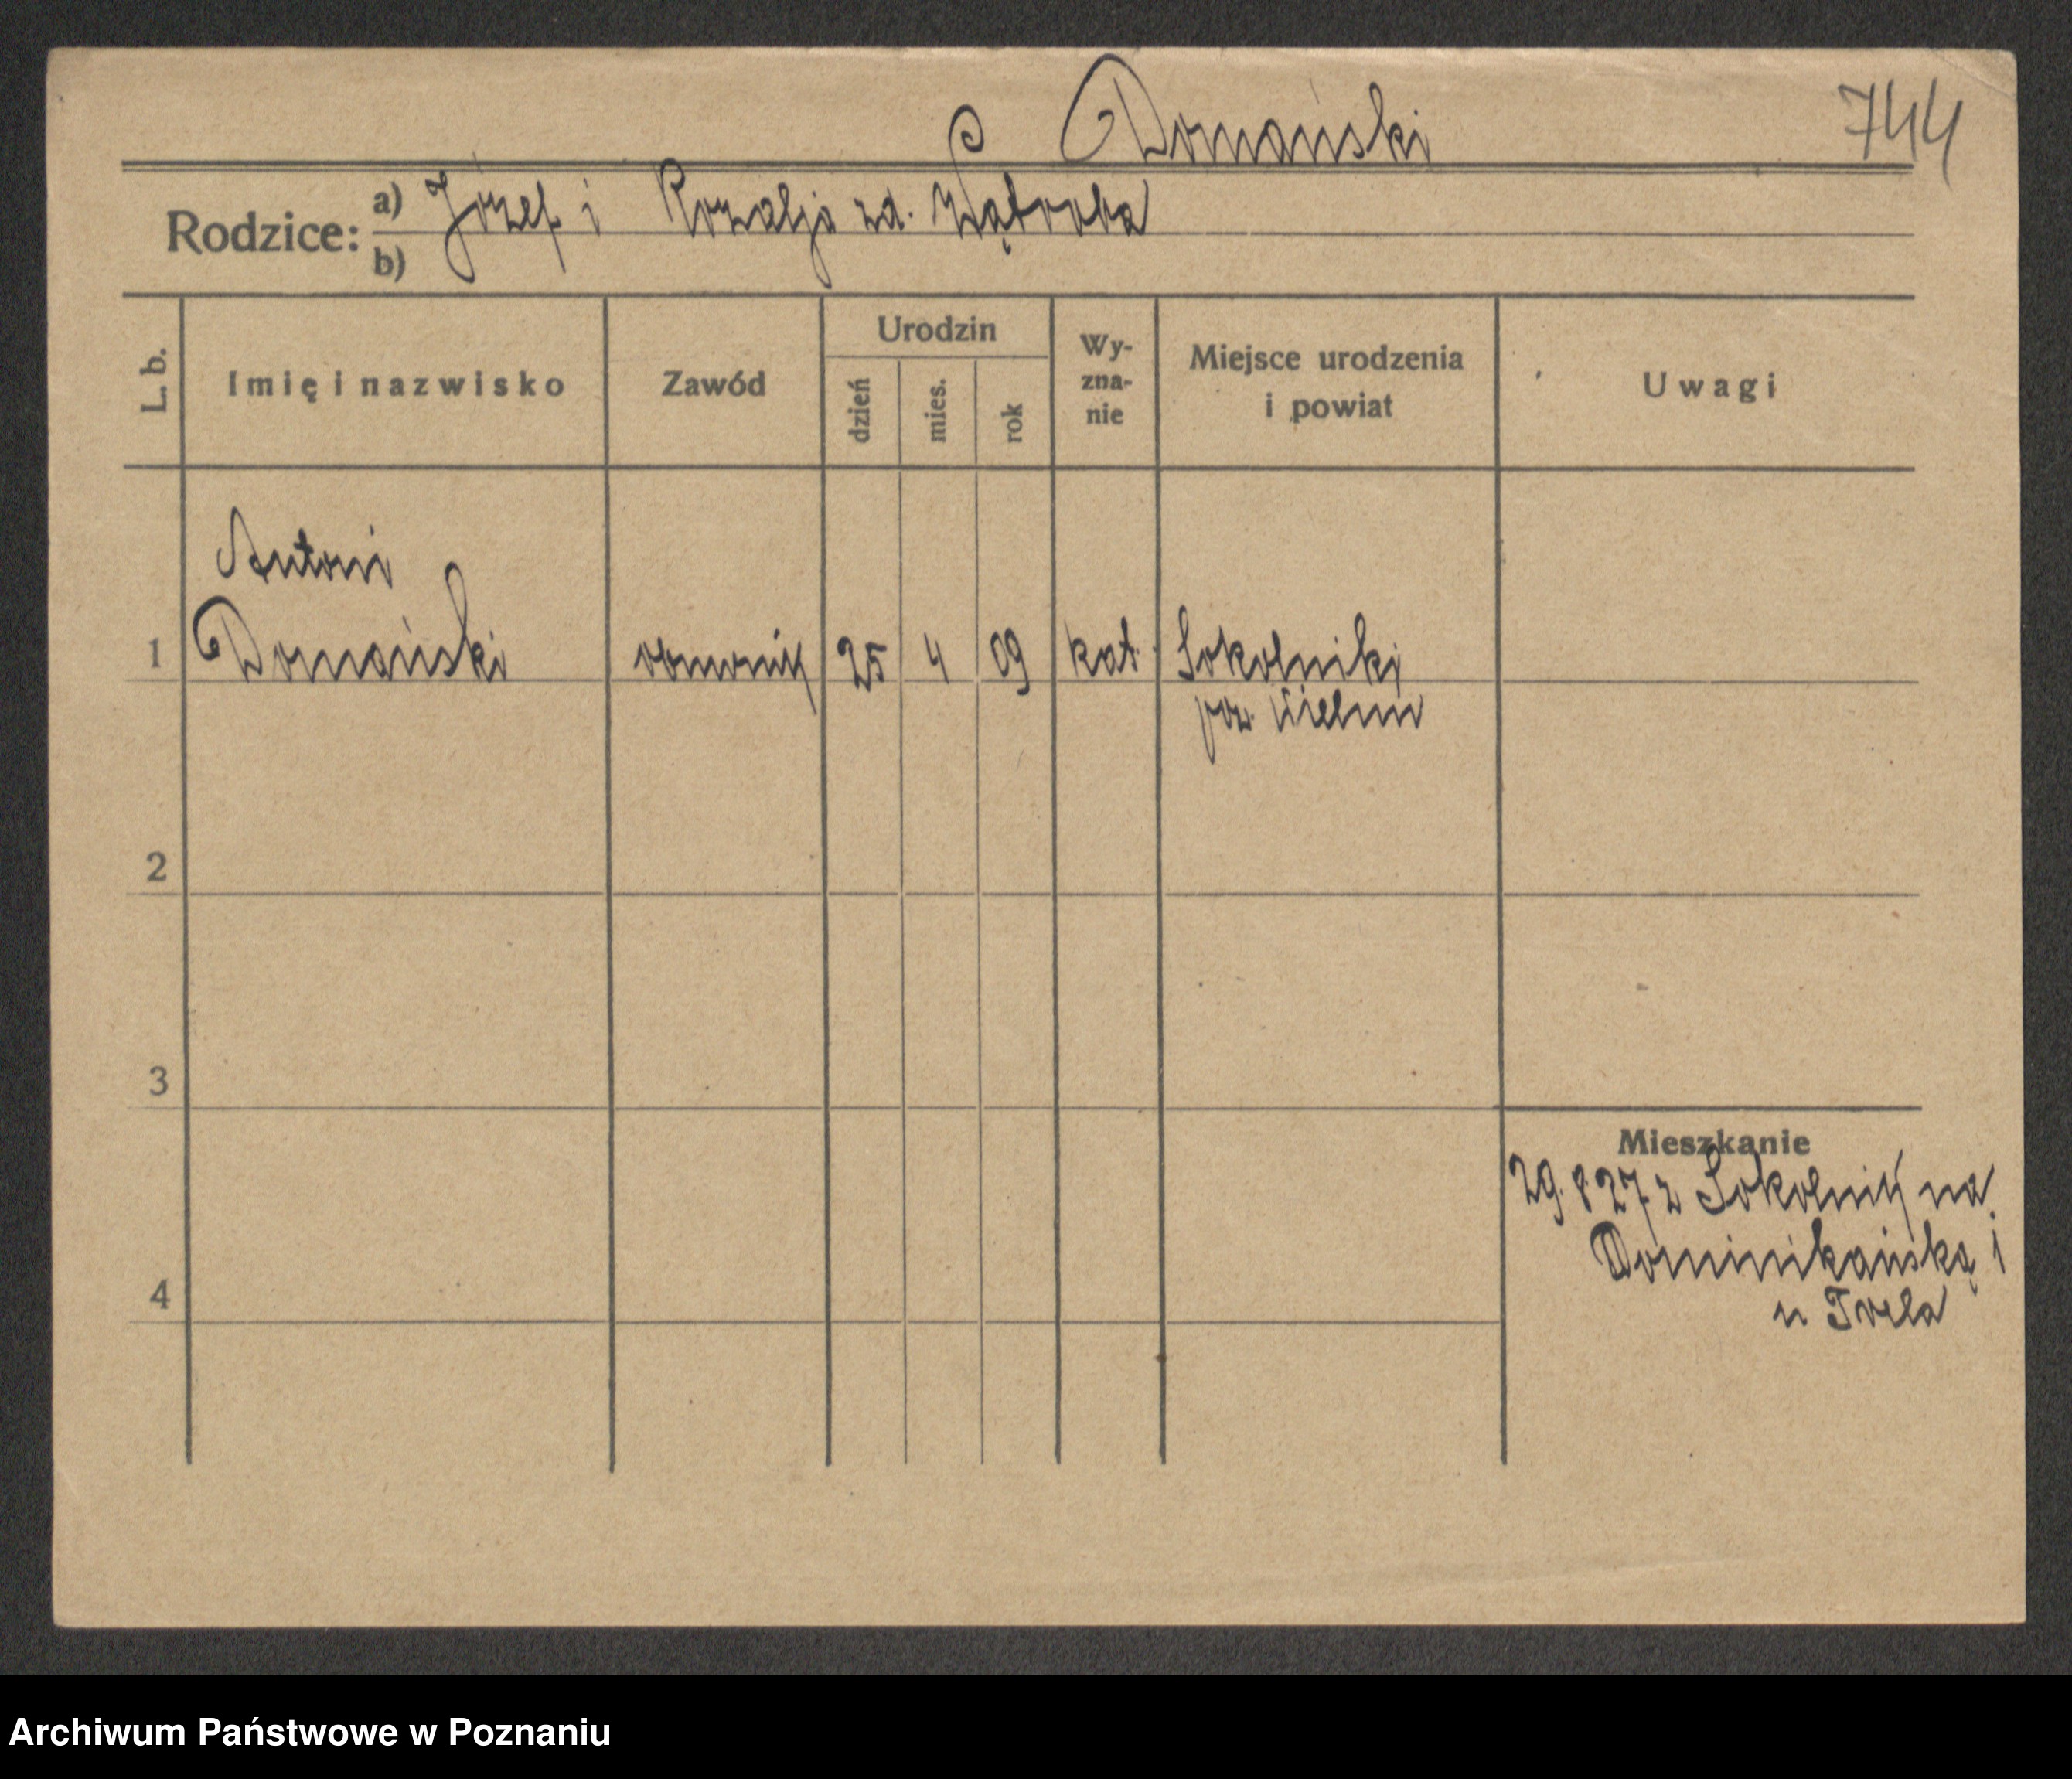 Domański
744
Rodzice: a) Józef i Rozalja zd. Wątroba
b)
L. b.
Imię i nazwisko
Zawód
Urodzin
dzień
mies.
rok
Wy-
zna-
nie
Miejsce urodzenia
i powiat
Uwagi
Antoni
1 Domański 25 4 09 kat. Sokolniki
pow. Wieluń
2
3
Mieszkanie
29. 8 27 z Sokolnik na
Dominikańską 1
4
u
Archiwum Państwowe w Poznaniu